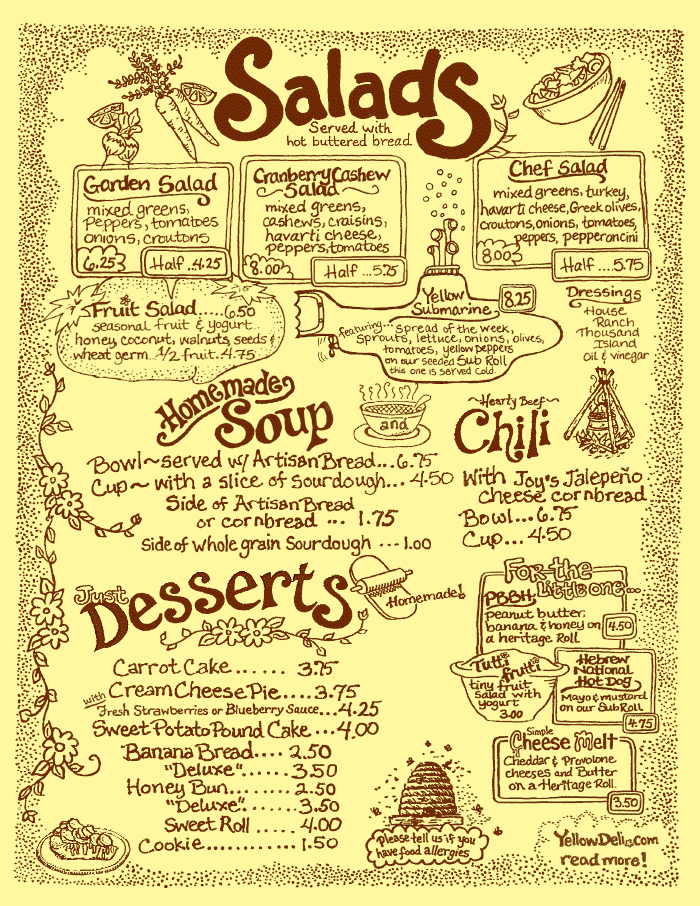 Salads
Served with
hot buttered bread
Garden Salad
mixed greens,
Peppers, tomatoes
onions, croutons
6.25
Half ..4.25
Cranberry Cashew
Salad
mixed greens,
cashews, craisins,
havarti cheese,
peppers, tomatoes
8.00
Half ...5.25
Chef Salad
mixed greens, turkey,
havarti cheese, Greek olives,
croutons, onions, tomatoes,
peppers, pepperoncini
8.00
Half ....5.75
Fruit Salad.....6.50
seasonal fruit & yogurt
honey, coconut, walnuts, seeds &
wheat germ. 1/2 fruit. 4.75
Yellow
Submarine
8.25
featuring... spread of the week,
sprouts, lettuce, onions, olives,
tomatoes, yellow peppers
on our seeded Sub Roll
this one is served cold.
Dressings
House
Ranch
Thousand
Island
Oil & vinegar
Homemade
Soup
and
~Hearty Beef~
Chili
Bowl~served w/ Artisan Bread...6.75
Cup~ with a slice of Sourdough... 4.50
Side of Artisan Bread
or cornbread ... 1.75
Side of whole grain Sourdough ...1.00
With Joy's Jalepeño
cheese cornbread
Bowl...6.75
Cup... 4.50
Just
Desserts
Homemade!
Carrot Cake....... 3.75
Cream Cheese Pie....3.75
with Fresh Strawberries or Blueberry Sauce...4.25
Sweet Potato Pound Cake ...4.00
Banana Bread.... 2.50
"Deluxe"....... 3.50
Honey Bun....... 2.50
"Deluxe"....... 3.50
Sweet Roll ..... 4.00
Cookie............. 1.50
For the
Little one...
PBBH
peanut butter,
banana & honey on
a heritage Roll
4.50
Tutti
frutti
tiny fruit
salad with
yogurt
3.00
Hebrew
National
Hot Dog
Mayo & mustard
on our Sub Roll
4.75
Simple
Cheese Melt
Cheddar & Provolone
cheeses and Butter
on a Heritage Roll.
3.50
Please tell us if you
have food allergies
YellowDeli.com
read more!